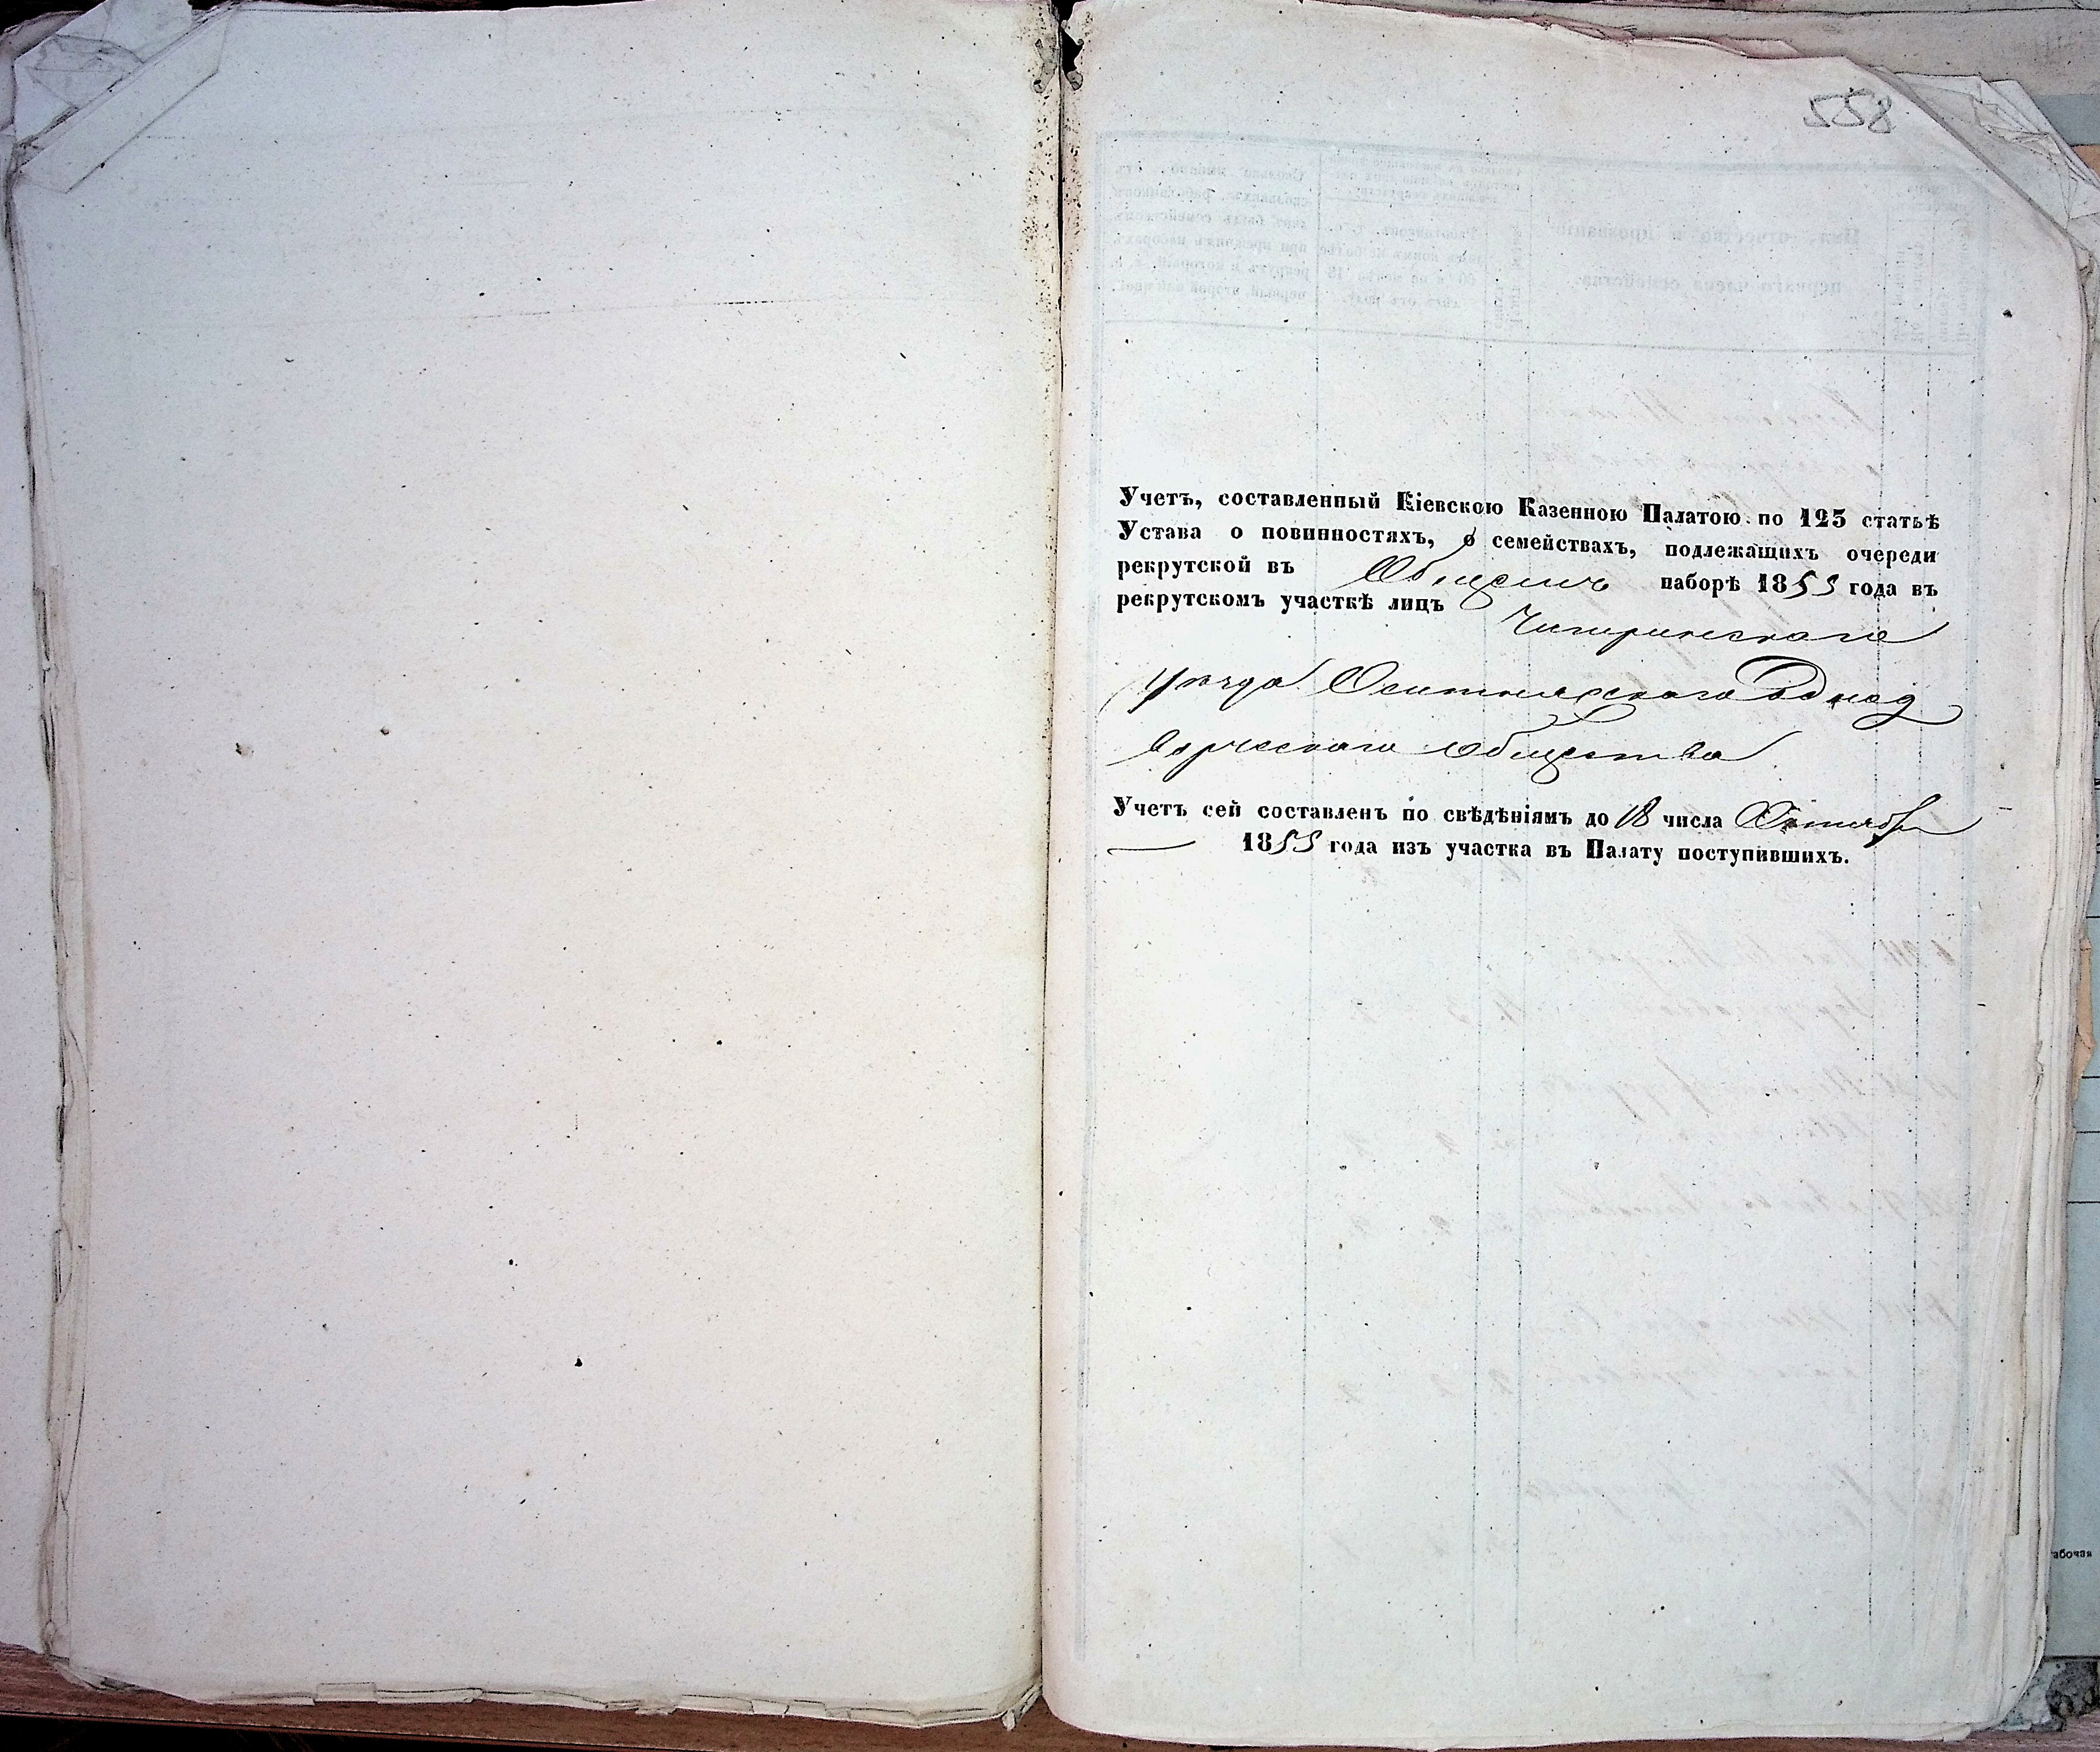 558
Учетъ, составленный Кіевскою Казенною Палатою по 125 статьѣ
Устава о повинностяхъ, о семействахъ, подлежащихъ очереди
рекрутской въ Общемъ наборѣ 1855 года въ
рекрутскомъ участкѣ лицъ Чигиринскаго
уѣзда Оситняжскаго Однод
ворческаго общества
Учетъ сей составленъ по свѣдѣніямъ до 18 числа Октября
1855 года изъ участка въ Палату поступившихъ.